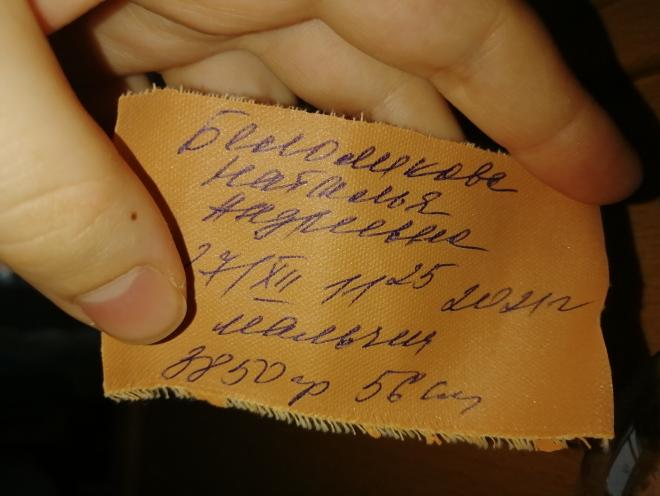 Белоликова
Наталья
Андреевна
27/XII 11 25 2021г
мальчик
3850 гр 56 см